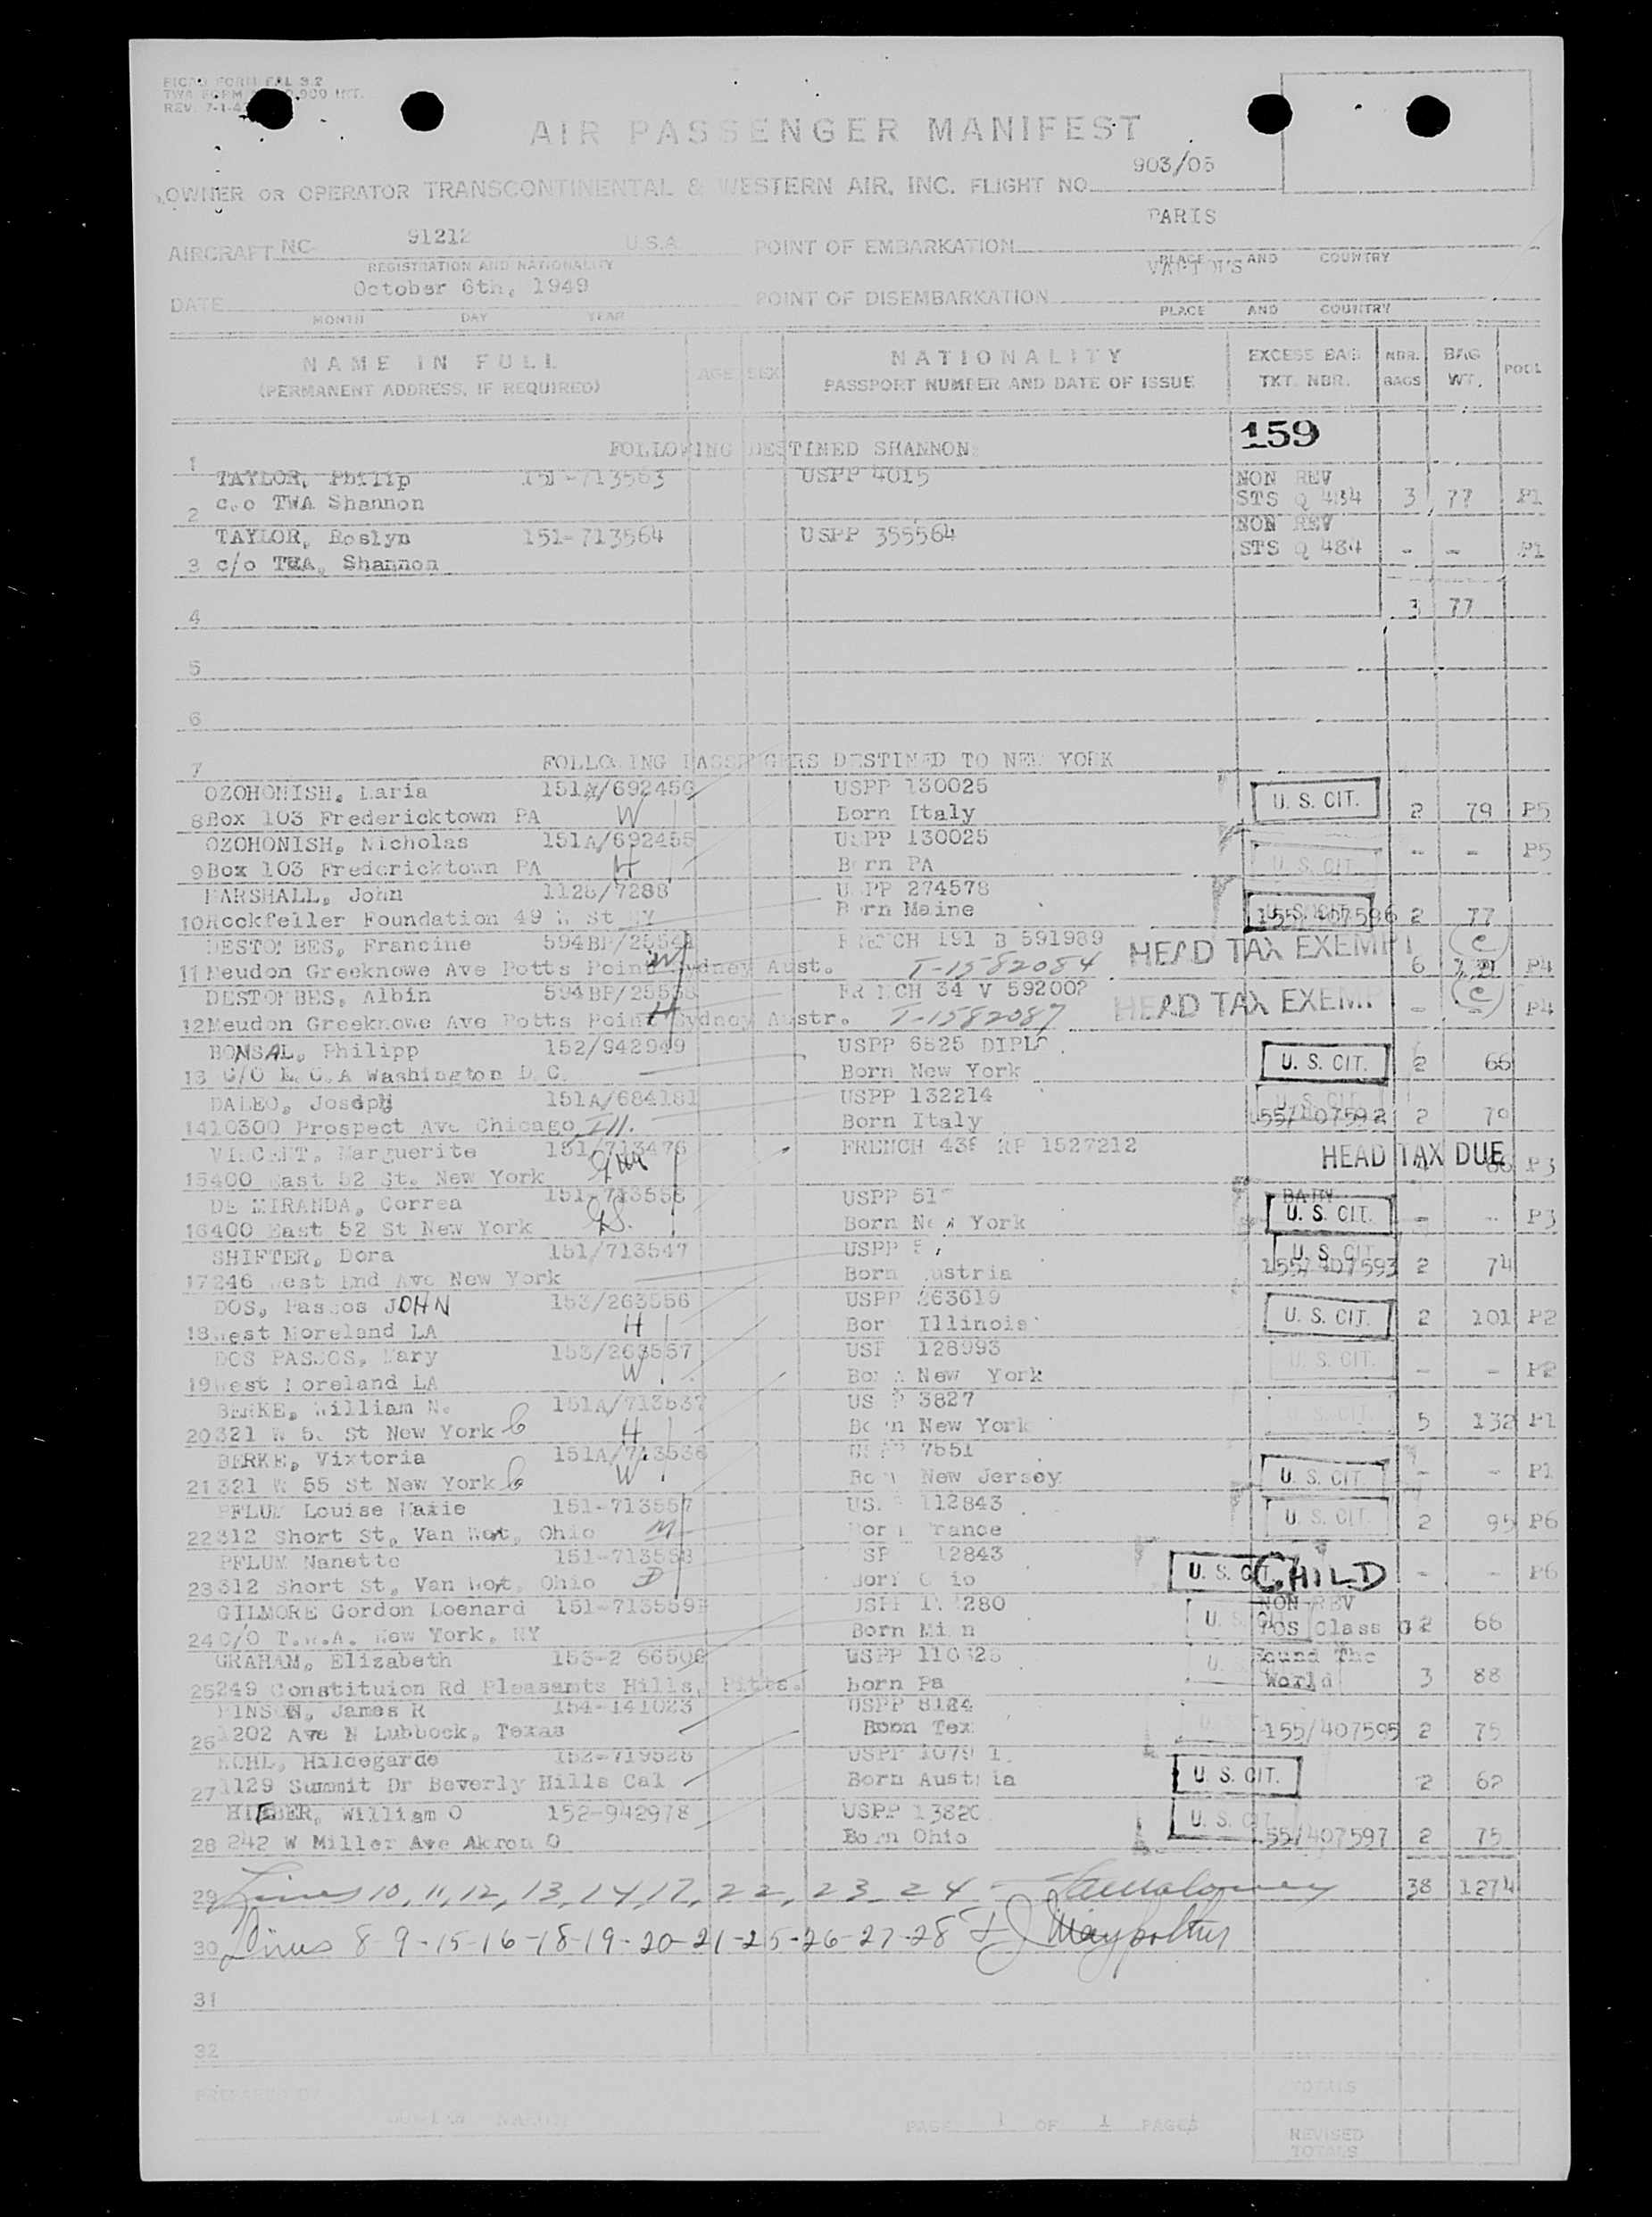 AIR PASSENGER MANIFEST
OWNER OR OPERATOR TRANSCONTINENTAL & WESTERN AIR, INC. FLIGHT NO. 903/05
PARIS
AIRCRAFT NC- 91212 U.S.A. POINT OF EMBARKATION
REGISTRATION AND NATIONALITY PLACE AND COUNTRY
DATE October 6th, 1949 POINT OF DISEMBARKATION
MONTH DAY YEAR PLACE AND COUNTRY
NAME IN FULL AGE SEX NATIONALITY EXCESS BAG NBR. BAG POOL
(PERMANENT ADDRESS, IF REQUIRED) PASSPORT NUMBER AND DATE OF ISSUE TKT. NBR. BAGS WT.
159
1 FOLLOWING DESTINED SHANNON
TAYLOR, Philip 151-713563 USPP 4015 NON REV
2 c.o TWA Shannon STS Q 484 3 77 P1
TAYLOR, Roslyn 151-713564 USPP 355564 NON REV
3 c/o TWA, Shannon STS Q 484 - - P1
4 3 77
5
6
7 FOLLOWING PASSENGERS DESTINED TO NEW YORK
OZOHONISH, Maria 151A/692456 USPP 130025
8 Box 103 Fredericktown PA W Born Italy U. S. CIT. 2 79 P5
OZOHONISH, Nicholas 151A/692455 USPP 130025
9 Box 103 Fredericktown PA H Born PA U. S. CIT. - - P5
MARSHALL, John 1128/7288 USPP 274578
10 Rockfeller Foundation 49 W St NY Born Maine 155/407596 2 77
DESTOMBES, Francine 594BP/ FRENCH 191 B 591989 HEAD TAX EXEMPT
11 Meudon Greeknowe Ave Potts Point Sydney Aust. W T-1582084 6 P4
DESTOMBES, Albin 594BP/ FRENCH 34 V 592002 HEAD TAX EXEMPT
12 Meudon Greeknowe Ave Potts Point Sydney Austr. H T-1582087 - - P4
BONSAL, Philipp 152/942949 USPP 6825 DIPLO
13 C/O E.C.A Washington D.C. Born New York U. S. CIT. 2 66
DALEO, Joseph 151A/684181 USPP 132214 U. S. CIT.
14 10300 Prospect Ave Chicago Ill. Born Italy 155/407592 2 70
VINCENT, Marguerite 151/713476 FRENCH 438 RP 1527212
15 400 East 52 St. New York HEAD TAX DUE P3
DE MIRANDA, Correa 151-713556 USPP
16 400 East 52 St New York Born New York U. S. CIT. - - P3
SHIFTER, Dora 151/713547 USPP U. S. CIT.
17 246 West End Ave New York Born Austria 155/407593 2 74
DOS, Passos JOHN 153/263556 USPP 263619
18 West Moreland LA H Born Illinois U. S. CIT. 2 101 P2
DOS PASSOS, Mary 153/263557 USPP 128993
19 West Moreland LA W Born New York U. S. CIT. - - P2
BERKE, William N. 151A/713537 USPP 3827
20 321 W 55 St New York H Born New York U. S. CIT. 5 132 P1
BERKE, Vixtoria 151A/713536 USPP 7551
21 321 W 55 St New York W Born New Jersey U. S. CIT. - - P1
PFLUM Louise Marie 151-713557 USPP 112843
22 312 Short St, Van Wert, Ohio M Born France U. S. CIT. 2 95 P6
PFLUM Nanette 151-713558 USPP 112843
23 312 Short St, Van Wert, Ohio D Born Ohio U. S. CIT. CHILD - - P6
GILMORE Gordon Loenard 151-713559 USPP NON REV
24 C/O T.W.A. New York, NY Born Minn U. S. CIT. POS Class G 2 66
GRAHAM, Elizabeth 153-2 66506 USPP Round The
25 249 Constituion Rd Pleasants Hills, Pitts. born Pa World 3 88
PINSON, James R 154-141023 USPP 8184
26 1202 Ave N Lubbock, Texas Boon Tex 155/407595 2 75
KOHL, Hildegarde 152-719528 USPP
27 1129 Summit Dr Beverly Hills Cal Born Austria U. S. CIT. 2 62
HIEBER, William O 152-942978 USPP 13820
28 242 W Miller Ave Akron O Born Ohio U. S. CIT. 155/407597 2 75
29 Lines 10, 11, 12, 13, 14, 17, 22, 23, 24 - 38 1274
30 Lines 8-9-15-16-18-19-20-21-25-26-27-28
31
32
PREPARED BY TOTALS
PAGE 1 OF 1 PAGES
REVISED
TOTALS